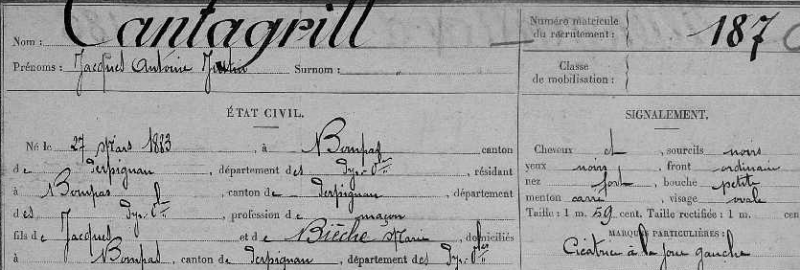 Nom : Cantagrill
Prénoms : Jacques Antoine Justin Surnom :
ÉTAT CIVIL.
Né le 27 Mars 1883, à Bompas canton
de Perpignan, département des Pyr. Ors, résidant
à Bompas, canton de Perpignan, département
des Pyr. Ors, profession de maçon
fils de Jacques et de Bièche Marie, domiciliés
à Bompas, canton de Perpignan, département des Pyr. Ors
Numéro matricule
du recrutement : 187
Classe
de mobilisation :
SIGNALEMENT.
Cheveux et, sourcils noirs
yeux noirs, front ordinaire
nez fort, bouche petite
menton carré, visage ovale
Taille : 1 m. 59 cent. Taille rectifiée : 1 m. cen
MARQUES PARTICULIÈRES :
Cicatrice à la joue gauche